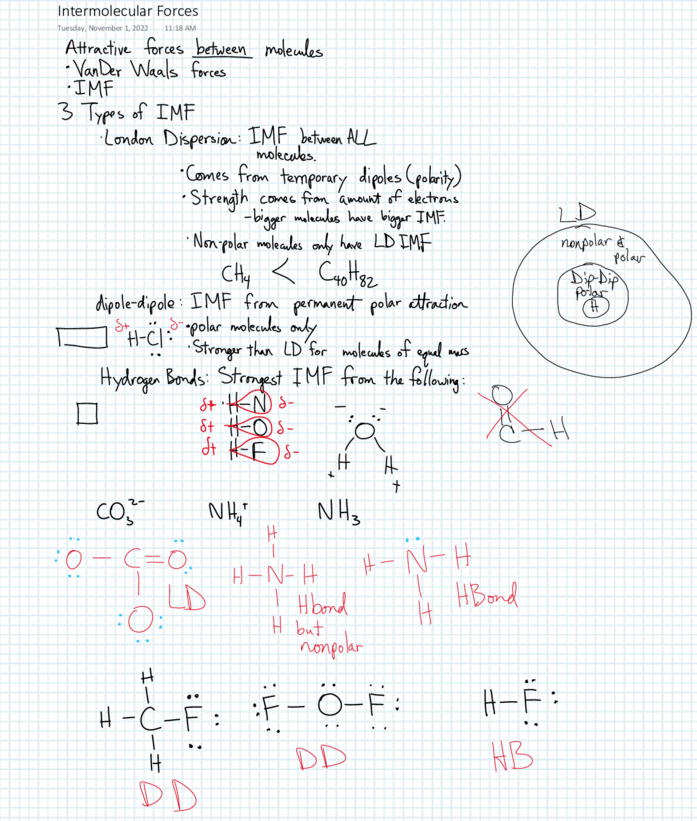 Intermolecular Forces
Tuesday, November 1, 2022 11:18 AM
Attractive forces between molecules
·VanDer Waals forces
·IMF
3 Types of IMF
·London Dispersion: IMF between ALL
molecules.
·Comes from temporary dipoles (polarity)
·Strength comes from amount of electrons
-bigger molecules have bigger IMF.
·Non-polar molecules only have LD IMF
CH₄ < C₄₀H₈₂
LD
nonpolar &
polar
Dip-Dip
polar
H
dipole-dipole: IMF from permanent polar attraction
δ+ H-Cl: δ- ·polar molecules only
·Stronger than LD for molecules of equal mass
Hydrogen Bonds: Strongest IMF from the following:
δ+ ·H-N δ-
δ+ H-O δ-
δ+ H-F δ-
- -
O
H H
+ +
O
C-H
CO₃²⁻ NH₄⁺ NH₃
:O-C=O:
:O:
LD
H
H-N-H
H
Hbond
but
nonpolar
H-N-H
H
HBond
H
H-C-F:
H
DD
:F-O-F:
DD
H-F:
HB